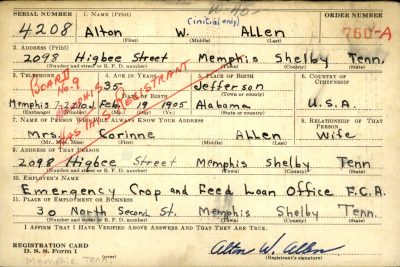 SERIAL NUMBER 1. NAME (Print) ORDER NUMBER
4208 Alton W. (initial only) ALLEN 760-A
(First) (Middle) (Last)
2. ADDRESS (Print)
2098 Higbee Street Memphis Shelby Tenn.
(Number and street or R. F. D. number) (Town) (County) (State)
3. TELEPHONE 4. AGE IN YEARS 5. PLACE OF BIRTH 6. COUNTRY OF CITIZENSHIP
35 Jefferson
DATE OF BIRTH (Town or county)
Memphis Feb. 19 1905 Alabama U.S.A.
(Exchange) (Number) (Mo.) (Day) (Yr.) (State or country)
BOARD
No. 9
MEMPHIS
HAS THIS REGISTRANT
7. NAME OF PERSON WHO WILL ALWAYS KNOW YOUR ADDRESS 8. RELATIONSHIP OF THAT PERSON
Mrs. Corinne Allen Wife
(Mr., Mrs., Miss) (First) (Middle) (Last)
9. ADDRESS OF THAT PERSON
2098 Higbee Street Memphis Shelby Tenn
(Number and street or R. F. D. number) (Town) (County) (State)
10. EMPLOYER'S NAME
Emergency Crop and Feed Loan Office F.C.A.
11. PLACE OF EMPLOYMENT OR BUSINESS
30 North Second St. Memphis Shelby Tenn.
(Number and street or R. F. D. number) (Town) (County) (State)
I AFFIRM THAT I HAVE VERIFIED ABOVE ANSWERS AND THAT THEY ARE TRUE.
REGISTRATION CARD
D. S. S. Form 1 Alton W. Allen
(over) (Registrant's signature)
Memphis Tenn.